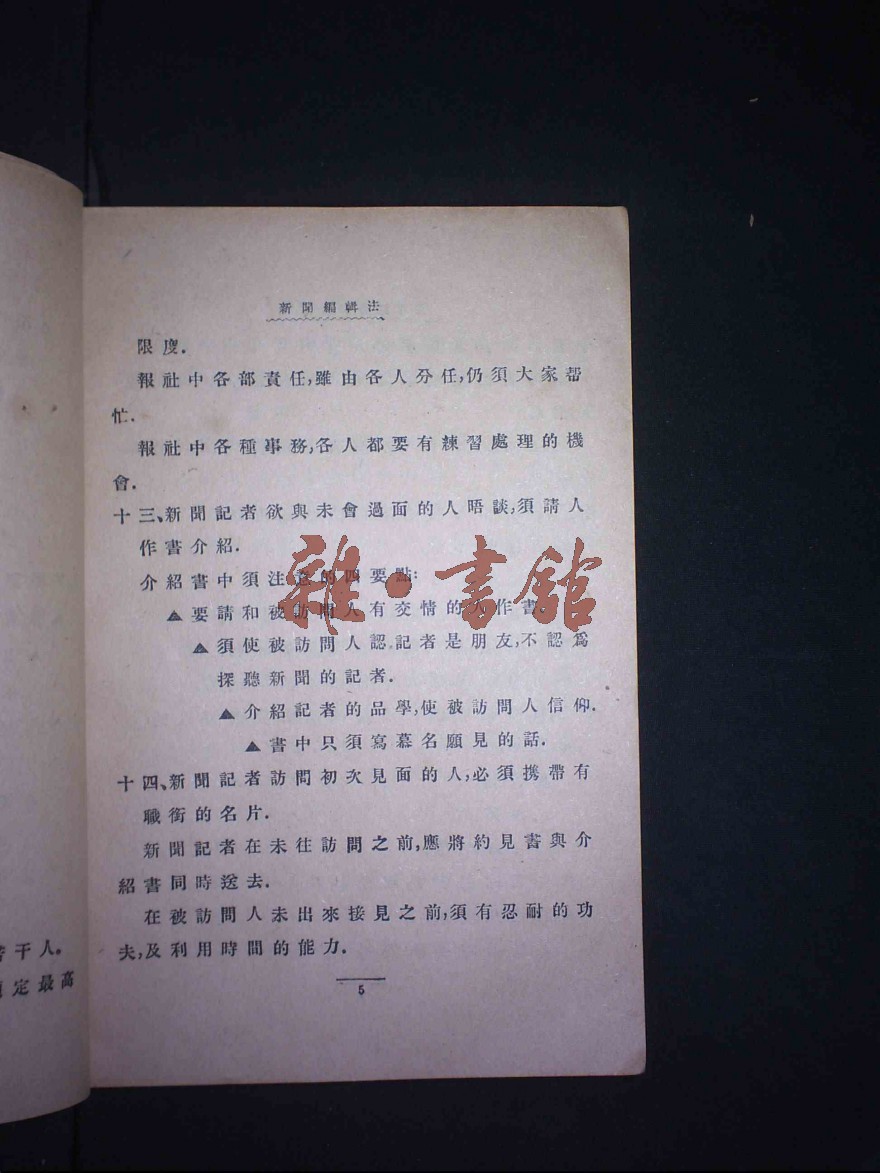 新聞編輯法
限度.
報社中各部責任,雖由各人分任,仍須大家帮
忙.
報社中各種事務,各人都要有練習處理的機
會.
十三、新聞記者欲與未會過面的人晤談,須請人
作書介紹.
介紹書中須注意的四要點:
▲要請和被訪問人有交情的人作書.
▲須使被訪問人認記者是朋友,不認爲
探聽新聞的記者.
▲介紹記者的品學,使被訪問人信仰.
▲書中只須寫慕名願見的話.
十四、新聞記者訪問初次見面的人,必須携帶有
職銜的名片.
新聞記者在未往訪問之前,應將約見書與介
紹書同時送去.
在被訪問人未出來接見之前,須有忍耐的功
夫,及利用時間的能力.
5
干人。
定最高
雜·書舘